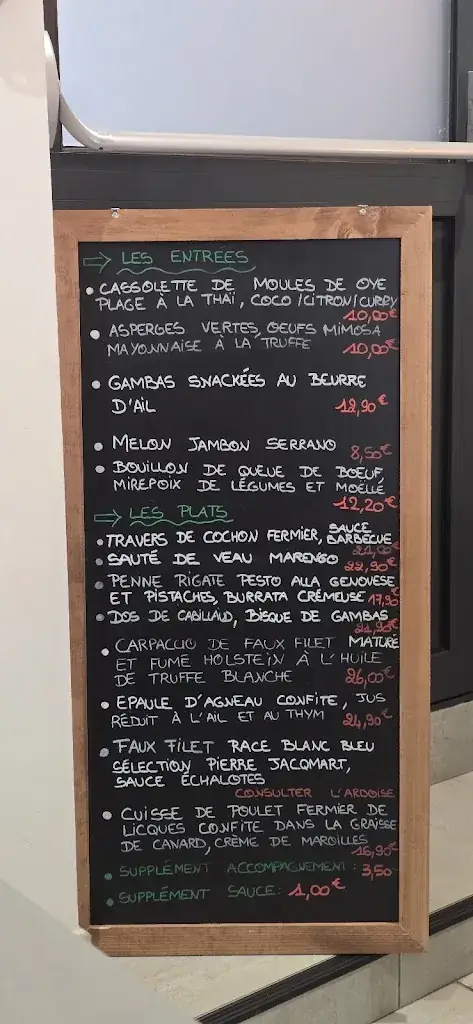 ⇒ LES ENTRÉES
• CASSOLETTE DE MOULES DE OYE
PLAGE À LA THAÏ, COCO/CITRON/CURRY
10,00€
• ASPERGES VERTES, OEUFS MIMOSA
MAYONNAISE À LA TRUFFE 10,00€
• GAMBAS SNACKÉES AU BEURRE
D'AIL 12,90€
• MELON JAMBON SERRANO 8,50€
• BOUILLON DE QUEUE DE BOEUF,
MIREPOIX DE LÉGUMES ET MOËLLE
12,20€
⇒ LES PLATS
• TRAVERS DE COCHON FERMIER, SAUCE BARBECUE
• SAUTÉ DE VEAU MARENGO 22,90€
• PENNE RIGATE PESTO ALLA GENOVESE
ET PISTACHES, BURRATA CRÉMEUSE 17,90
• DOS DE CABILLAUD, BISQUE DE GAMBAS
21,90€
• CARPACCIO DE FAUX FILET MATURÉ
ET FUMÉ HOLSTEIN À L'HUILE
DE TRUFFE BLANCHE 26,00€
• EPAULE D'AGNEAU CONFITE, JUS
RÉDUIT À L'AIL ET AU THYM 24,90€
• FAUX FILET RACE BLANC BLEU
SÉLECTION PIERRE JACQMART,
SAUCE ÉCHALOTES
CONSULTER L'ARDOISE
• CUISSE DE POULET FERMIER DE
LICQUES CONFITE DANS LA GRAISSE
DE CANARD, CRÈME DE MAROILLES
16,90€
• SUPPLÉMENT ACCOMPAGNEMENT : 3,50€
• SUPPLÉMENT SAUCE : 1,00€